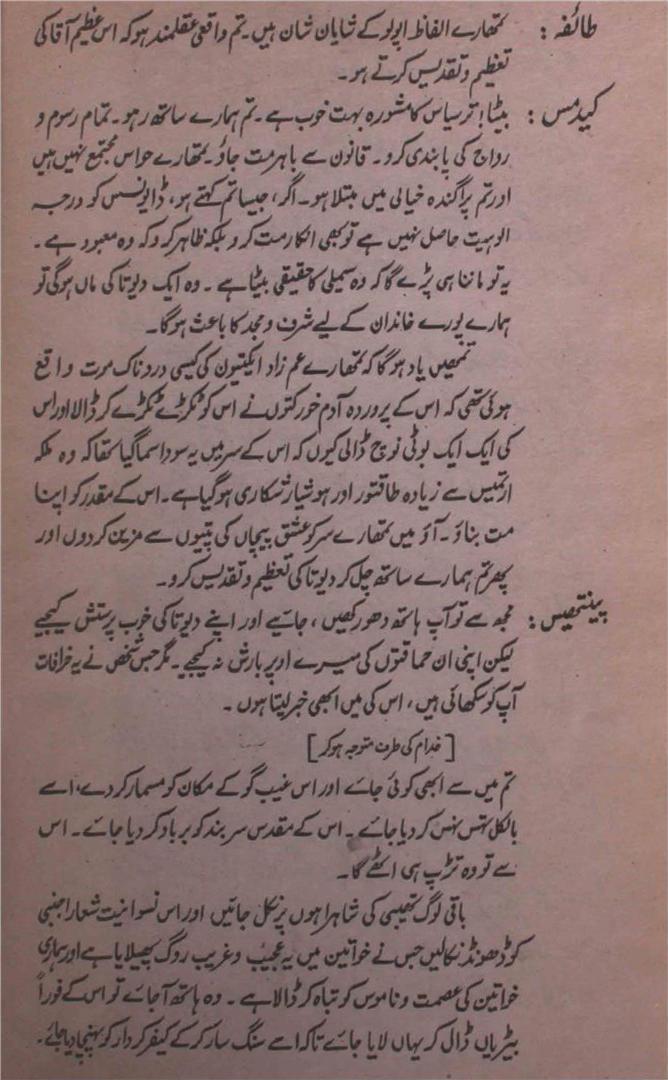 طائفہ : تمھارے الفاظ اپولو کے شایان شان ہیں۔ تم واقعی عقلمند ہو کہ اس عظیم آقا کی
تعظیم و تقدیس کرتے ہو۔
کیڈمس : بیٹا! ترسیاس کا مشورہ بہت خوب ہے۔ تم ہمارے ساتھ رہو۔ تمام رسوم و
رواج کی پابندی کرو۔ قانون سے باہر مت جاؤ۔ تمھارے حواس مجتمع نہیں ہیں
اور تم پراگندہ خیالی میں مبتلا ہو۔ اگر، جیسا تم کہتے ہو، ڈایونسس کو درجہ
الوہیت حاصل نہیں ہے تو بھی انکار مت کرو بلکہ ظاہر کرو کہ وہ معبود ہے۔
یہ تو ماننا ہی پڑے گا کہ وہ سمیلی کا حقیقی بیٹا ہے۔ وہ ایک دیوتا کی ماں ہوگی تو
ہمارے پورے خاندان کے لیے شرف و مجد کا باعث ہوگا۔
تمھیں یاد ہوگا کہ تمھارے عم زاد ایکتیون کی کیسی دردناک موت واقع
ہوئی تھی کہ اس کے پروردہ آدم خور کتوں نے اس کو ٹکڑے ٹکڑے کر ڈالا اور اس
کی ایک ایک بوٹی نوچ ڈالی کیوں کہ اس کے سر میں یہ سودا سما گیا تھا کہ وہ ملکہ
ارتمیس سے زیادہ طاقتور اور ہوشیار شکاری ہو گیا ہے۔ اس کے مقدر کو اپنا
مت بناؤ۔ آؤ میں تمھارے سر کو عشق پیچاں کی پتیوں سے مزین کر دوں اور
پھر تم ہمارے ساتھ چل کر دیوتا کی تعظیم و تقدیس کرو۔
پینتھیس : مجھ سے تو آپ ہاتھ دھو رکھیں، جائیے اور اپنے دیوتا کی خوب پرستش کیجیے
لیکن اپنی ان حماقتوں کی میرے اوپر بارش نہ کیجیے۔ مگر جس شخص نے یہ خرافات
آپ کو سکھائی ہیں، اس کی میں ابھی خبر لیتا ہوں۔
[خدام کی طرف متوجہ ہو کر]
تم میں سے ابھی کوئی جائے اور اس غیب گو کے مکان کو مسمار کر دے، اسے
بالکل تہس نہس کر دیا جائے۔ اس کے مقدس سربند کو برباد کر دیا جائے۔ اس
سے تو وہ تڑپ ہی اٹھے گا۔
باقی لوگ تھیبی کی شاہراہوں پر نکل جائیں اور اس نسوانیت شعار اجنبی
کو ڈھونڈ نکالیں جس نے خواتین میں یہ عجیب و غریب روگ پھیلایا ہے اور ہماری
خواتین کی عصمت و ناموس کو تباہ کر ڈالا ہے۔ وہ ہاتھ آ جائے تو اس کے فوراً
بیڑیاں ڈال کر یہاں لایا جائے تاکہ اسے سنگ سار کر کے کیفر کردار کو پہنچا دیا جائے۔